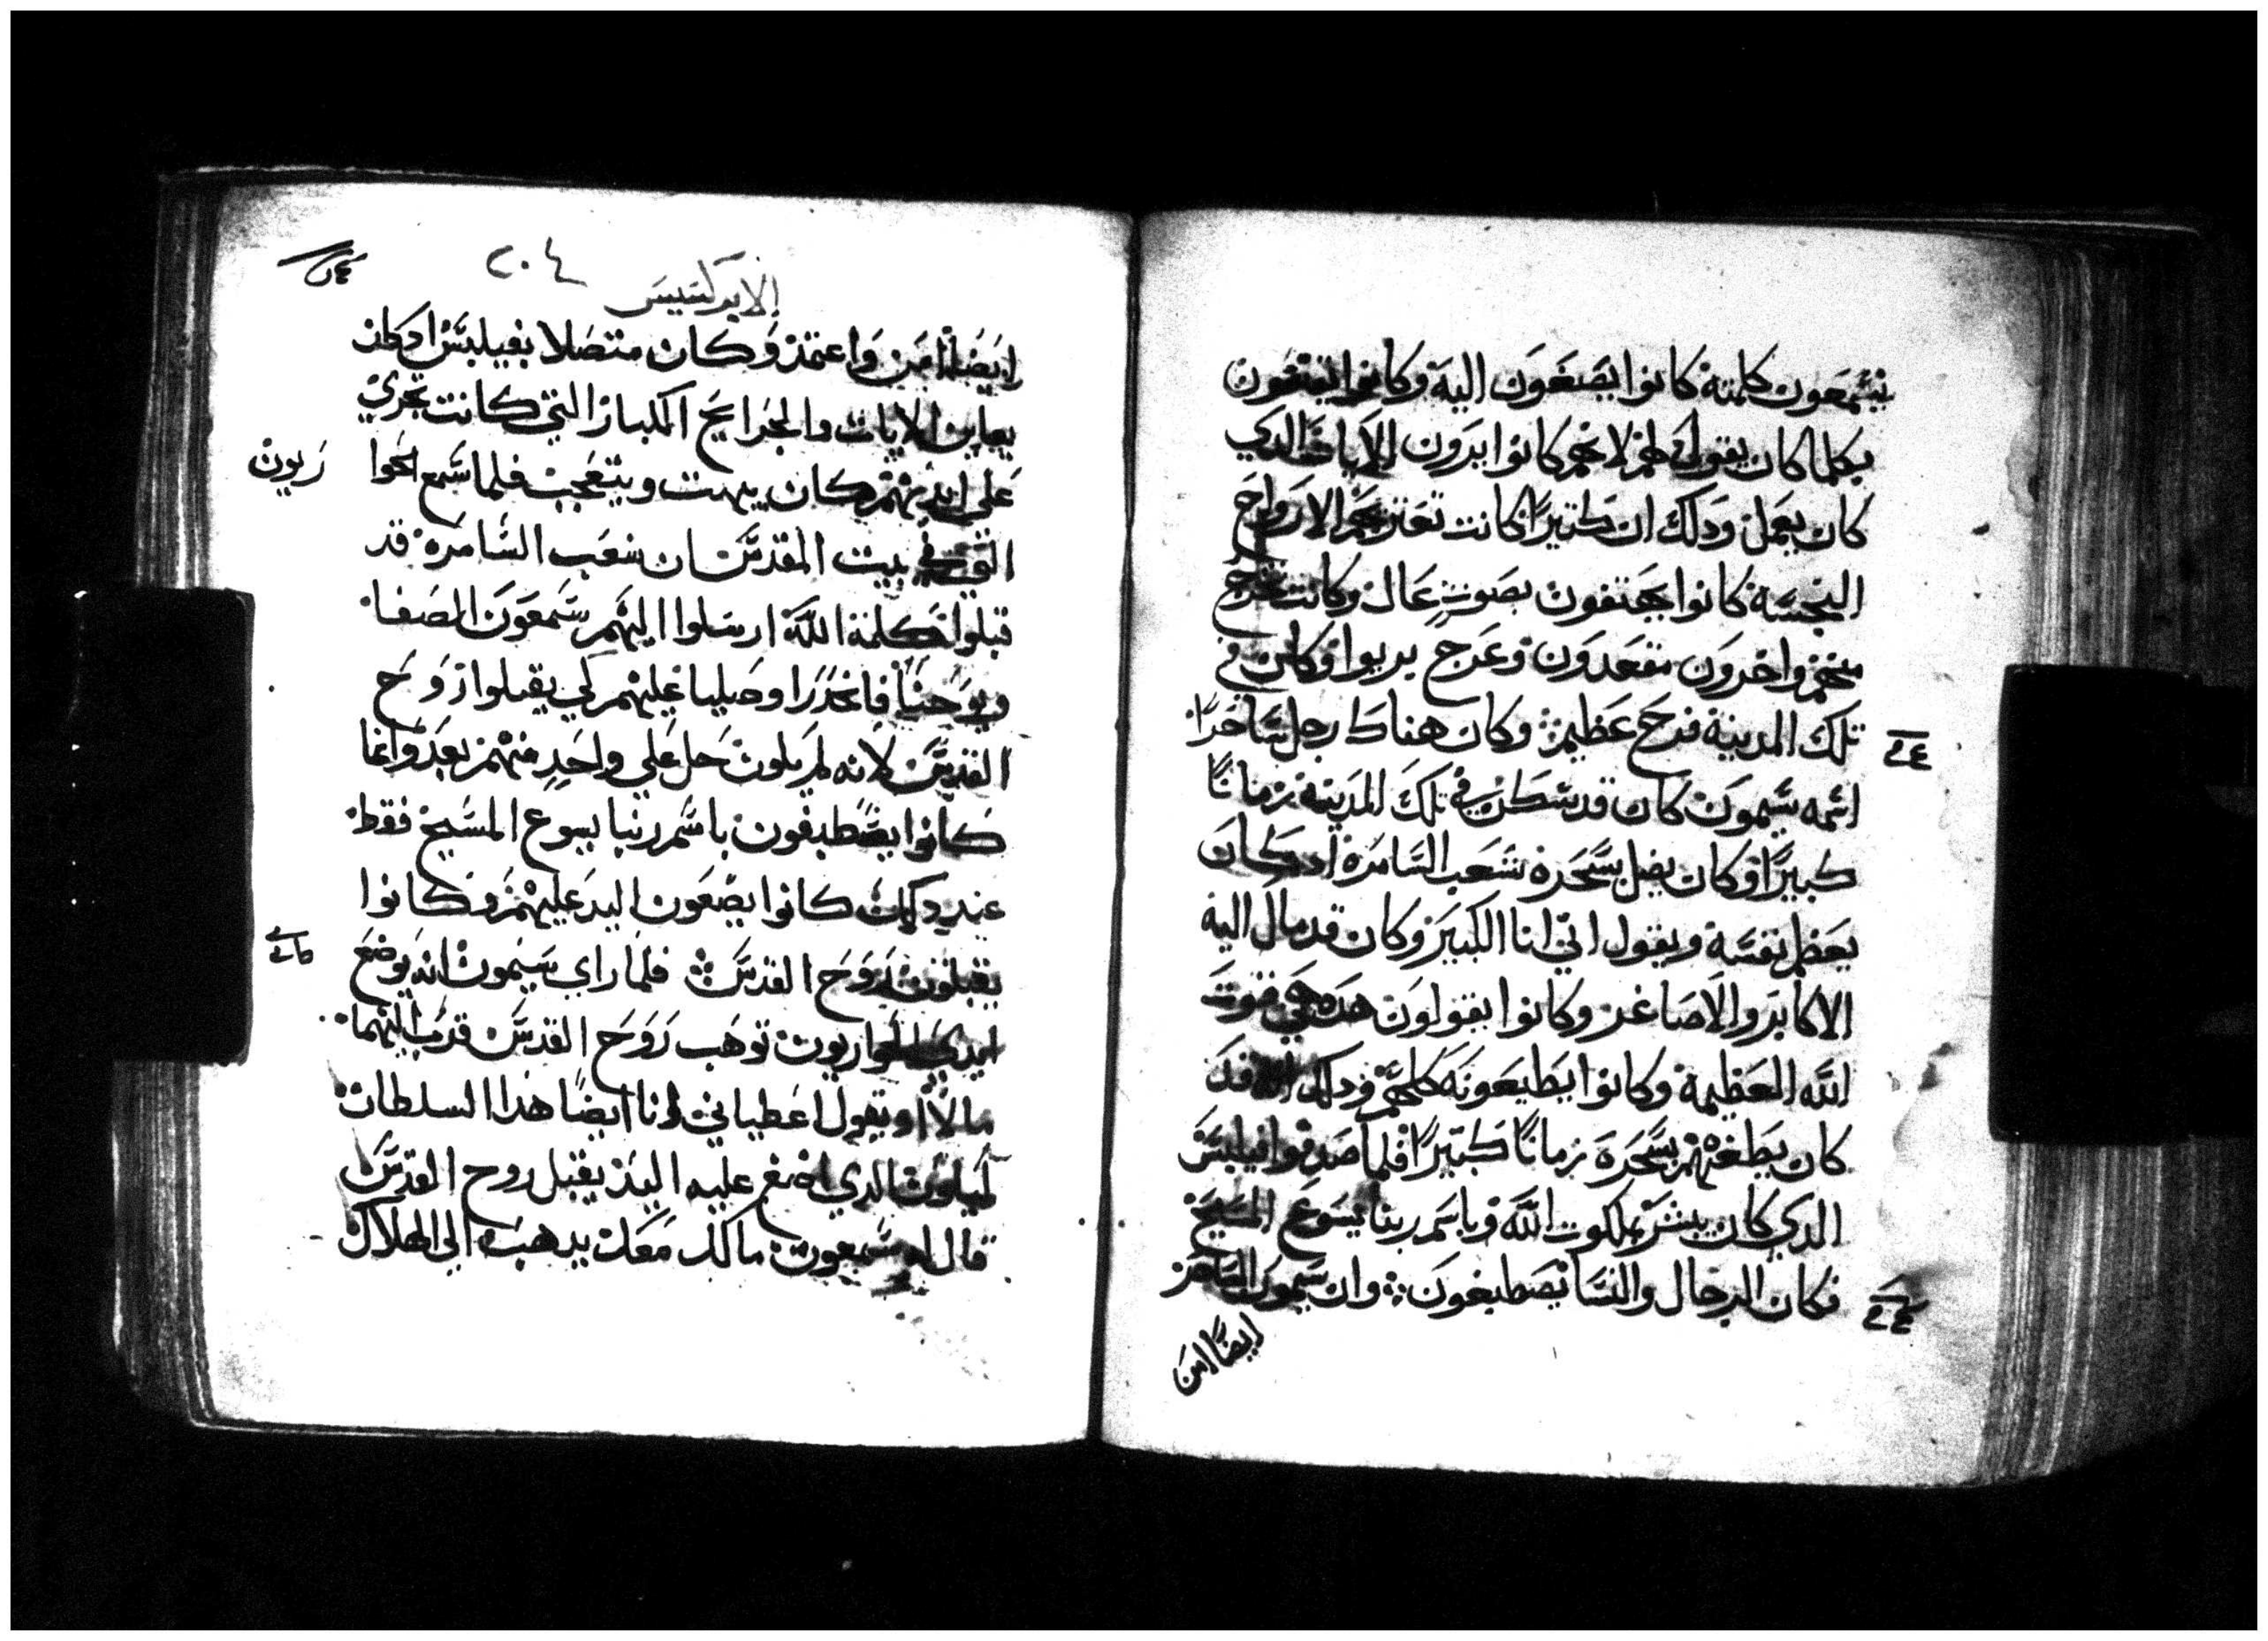 يسمعون كلمته كانوا يصغون اليه وكانوا يقنعون
بكلما كان يقول لهم لانهم كانوا يرون الايات الدي
كان يعمل ودلك ان كتيرا كانت تعتريهم الارواح
النجسة كانوا يهتفون بصوت عال وكانت تخرج
منهم واخرون مقعدون وعرج بريوا وكان في
تلك المدينة فرح عظيم وكان هناك رجل ساحرا
اسمه سيمون كان قد سكن في تلك المدينة زمانا
كبيرا وكان يضل بسحره شعب السامرة ادكان
يعظم نفسه ويقول اني انا الكبير وكان قد مال اليه
الاكابر والاصاغر وكانوا يقولون هده هي قوت
الله العظيمة وكانوا يطيعونه كلهم ودلك انه قد
كان يطغيهم بسحره زمانا كتيرا فلما صدقوا فيلبس
الدي كان يبشر بملكوت الله وباسم ربنا يسوع المسيح
فكان الرجال والنسا يصطبغون وان سيمون الساحر
ايضا امن
٢٠٤
الابركسيس
ايضا امن واعتمد وكان متصلا بفيلبس ادكان
يعاين الايات والجرايح الكبار التي كانت تجري
على ايديهم كان يبهت ويتعجب فلما سمع الحوا
ريون
التي في بيت المقدس ان شعب السامرة قد
قبلوا كلمة الله ارسلوا اليهم سمعون الصفا
ويوحنا فانحدرا وصليا عليهم لكي يقبلوا روح
القدس لانه لم يكون حل على واحد منهم بعد وانما
كانوا يصطبغون باسم ربنا يسوع المسيح فقط
عند دلك كانوا يضعون اليد عليهم وكانوا
يقبلون روح القدس فلما راي سيمون انه بوضع
ايدي الحواريون توهب روح القدس قرب اليهما
مالا ويقول اعطياني انا ايضا هدا السلطان
ليكون الدي اضع عليه اليد يقبل روح القدس
قال له سمعون مالك معك يدهب الي الهلاك